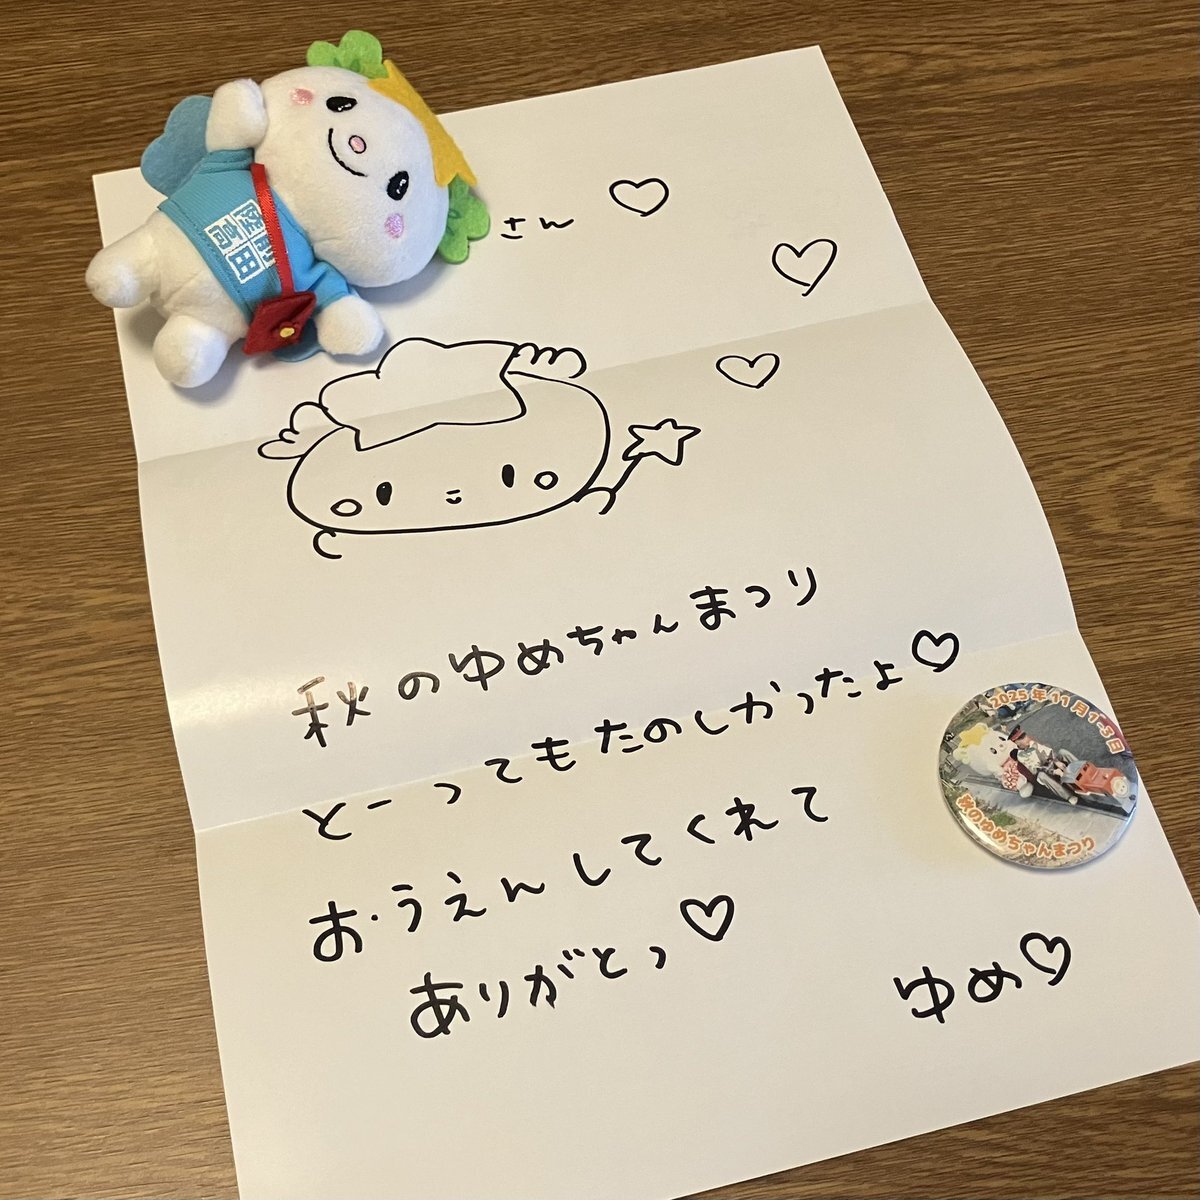 陸前
高田
さん♡
♡
♡
秋のゆめちゃんまつり
とーってもたのしかったよ♡
おうえんしてくれて
ありがとっ♡
ゆめ♡
2025年11月1-3日
秋のゆめちゃんまつり